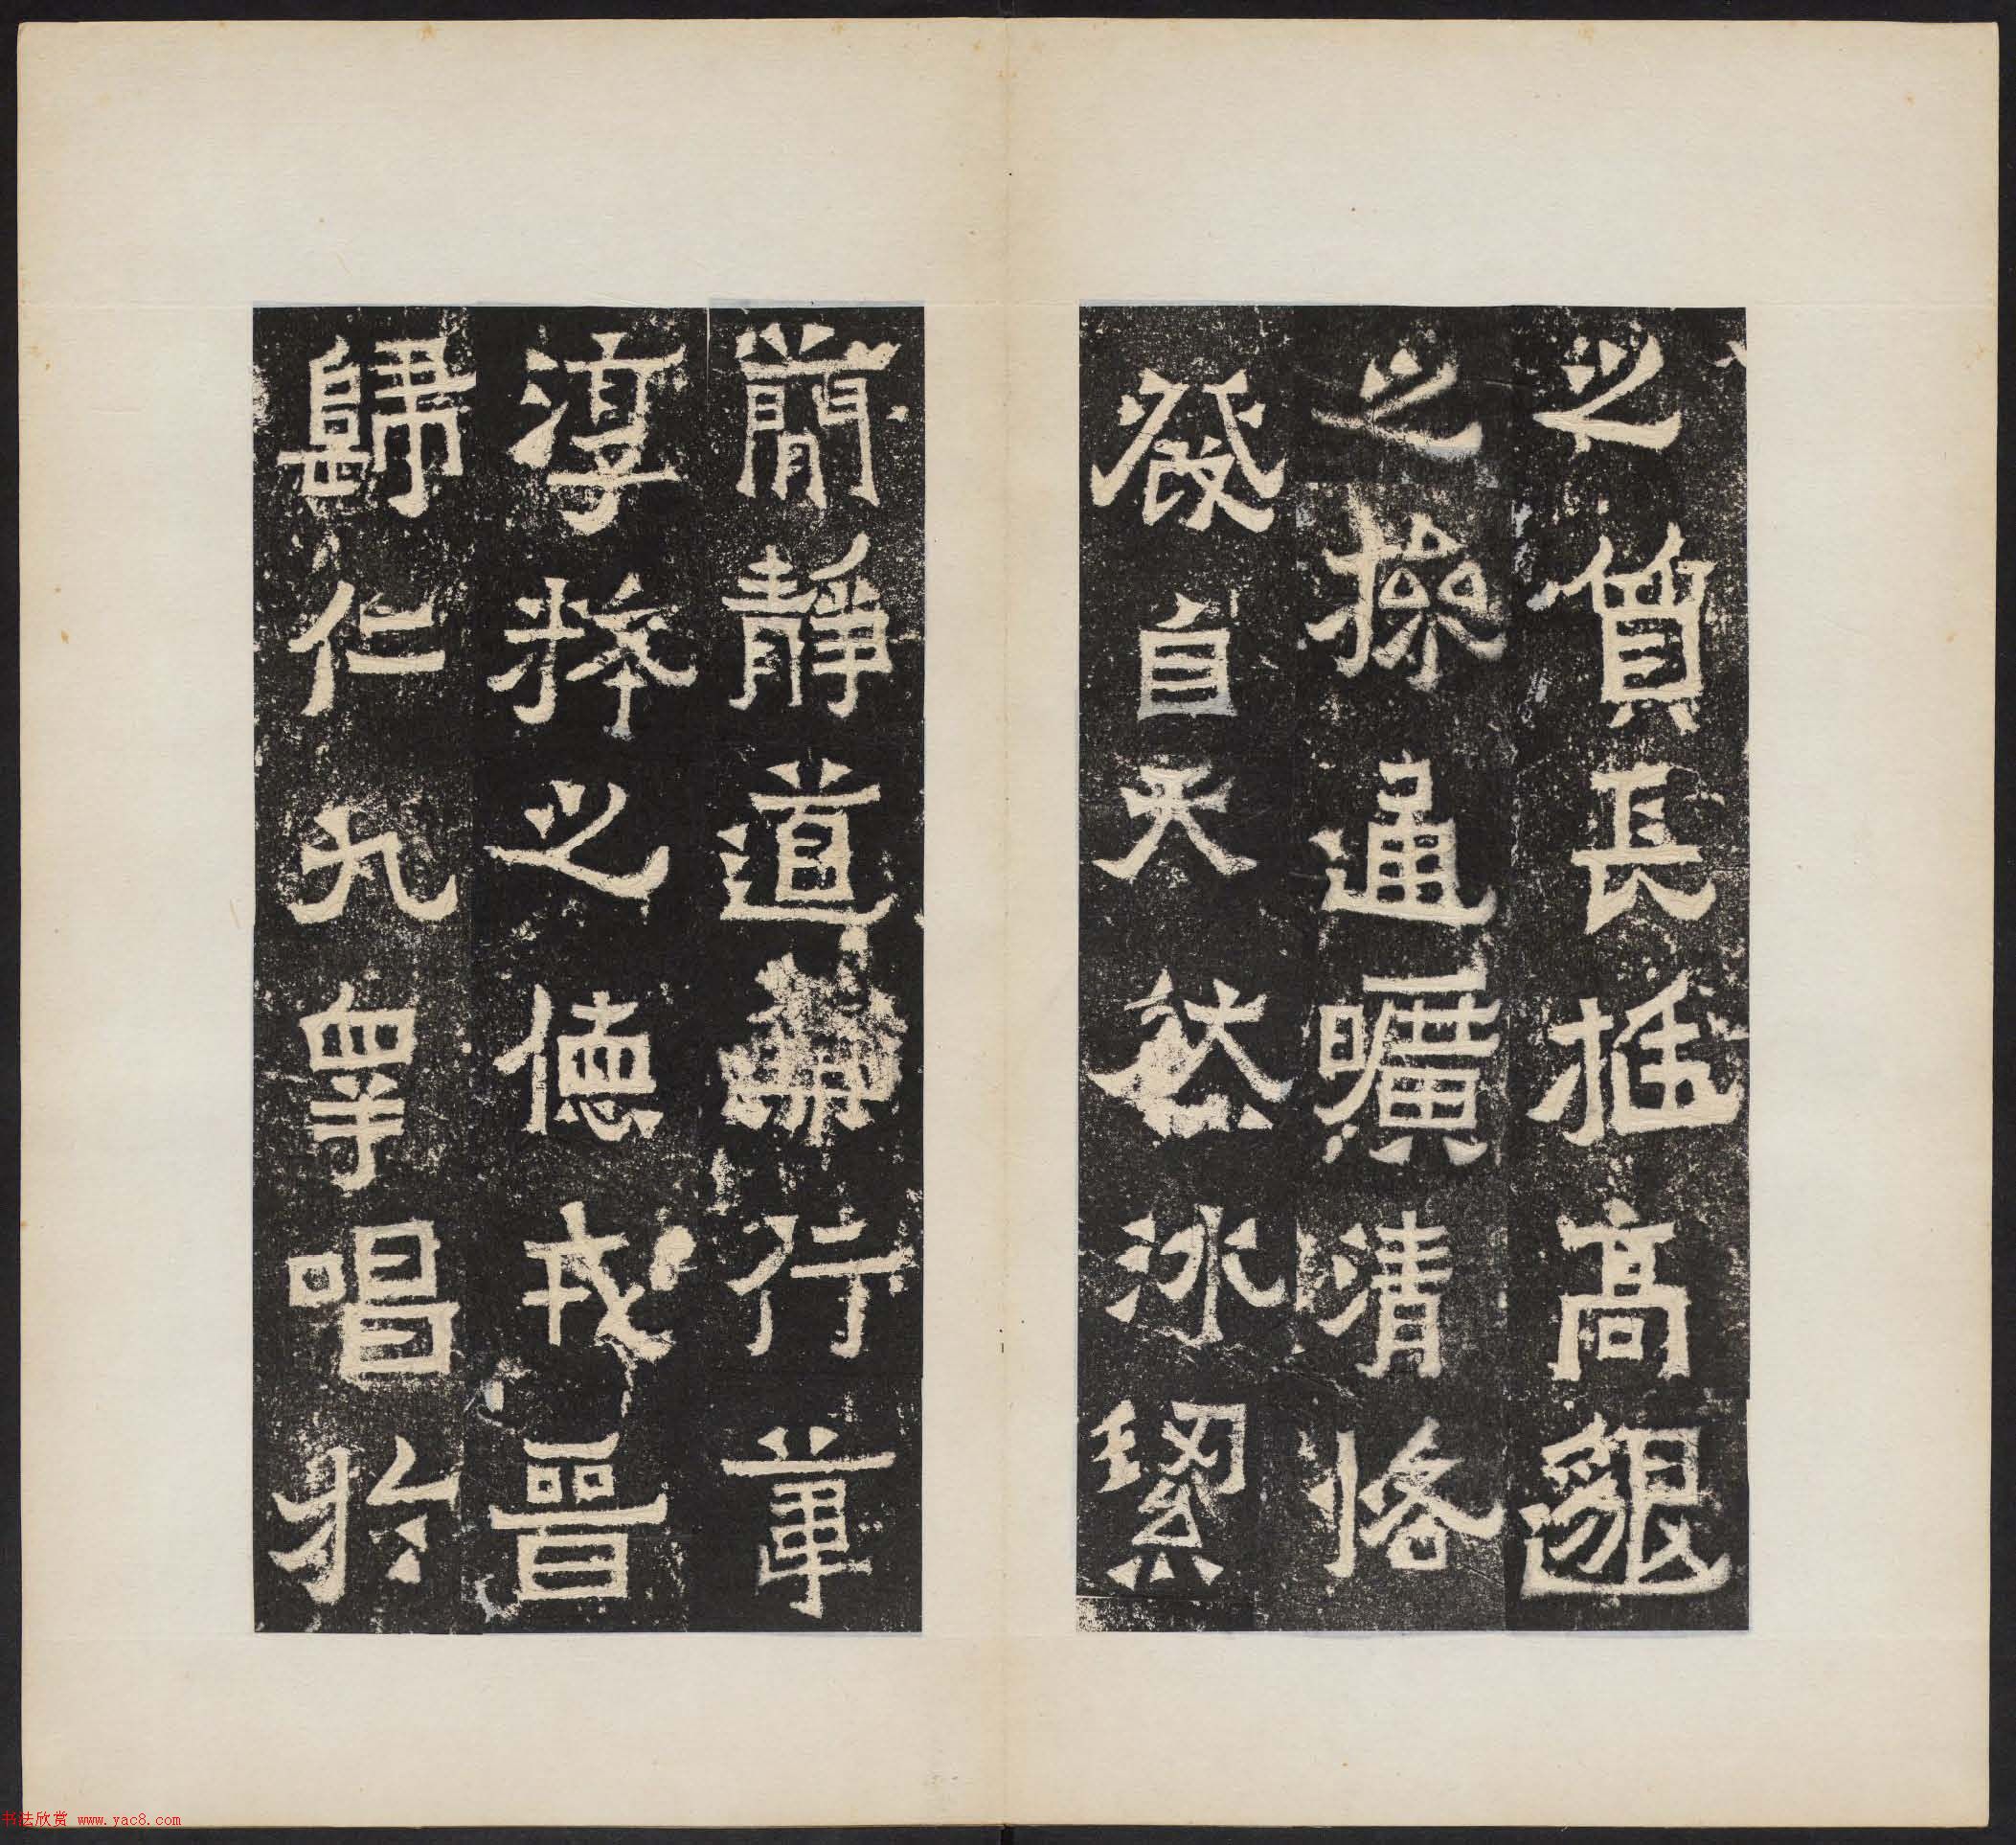 之質長挺高邈
之操通曠清恪
發自天然冰絜
簡靜道兼行葦
淳粹之德戎晉
歸仁九皋唱於
书法欣赏 www.yac8.com